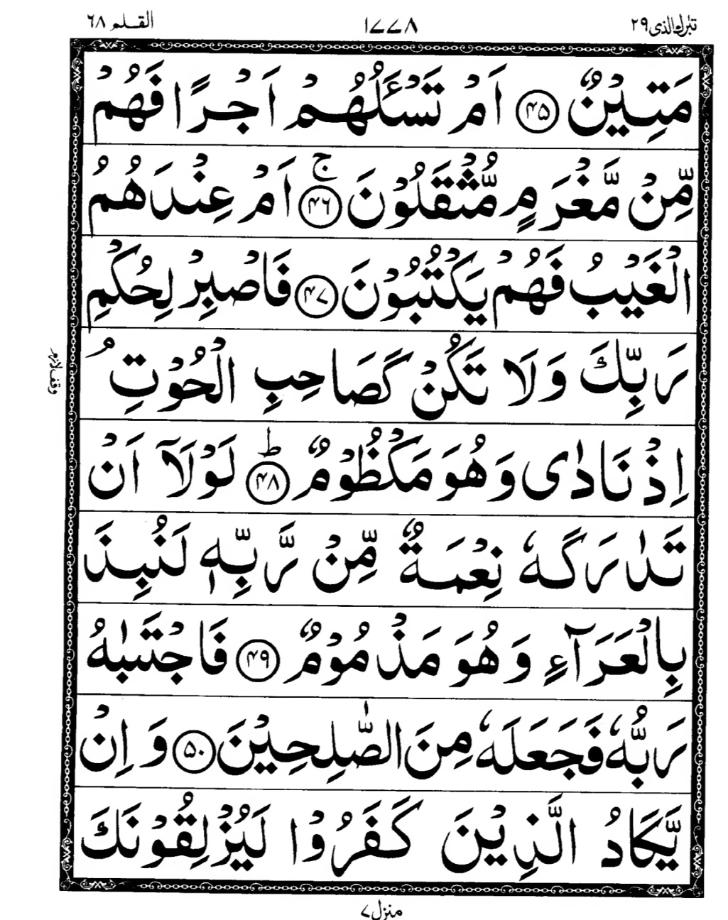 تبٰرك الذی ۲۹ ۱۷۷۸ القلم ۶۸
مَتِيْنٌ ﴿۴۵﴾ اَمْ تَسْـَٔلُهُمْ اَجْرًا فَهُمْ
مِّنْ مَّغْرَمٍ مُّثْقَلُوْنَ ﴿۴۶﴾ۚ اَمْ عِنْدَهُمُ
الْغَيْبُ فَهُمْ يَكْتُبُوْنَ ﴿۴۷﴾ فَاصْبِرْ لِحُكْمِ
رَبِّكَ وَلَا تَكُنْ كَصَاحِبِ الْحُوْتِ ۘ
وقف لازم
اِذْ نَادٰى وَهُوَ مَكْظُوْمٌ ﴿۴۸﴾ؕ لَوْلَاۤ اَنْ
تَدٰرَكَهٗ نِعْمَةٌ مِّنْ رَّبِّهٖ لَنُبِذَ
بِالْعَرَآءِ وَهُوَ مَذْمُوْمٌ ﴿۴۹﴾ فَاجْتَبٰىهُ
رَبُّهٗ فَجَعَلَهٗ مِنَ الصّٰلِحِيْنَ ﴿۵۰﴾ وَاِنْ
يَّكَادُ الَّذِيْنَ كَفَرُوْا لَيُزْلِقُوْنَكَ
منزل ۷